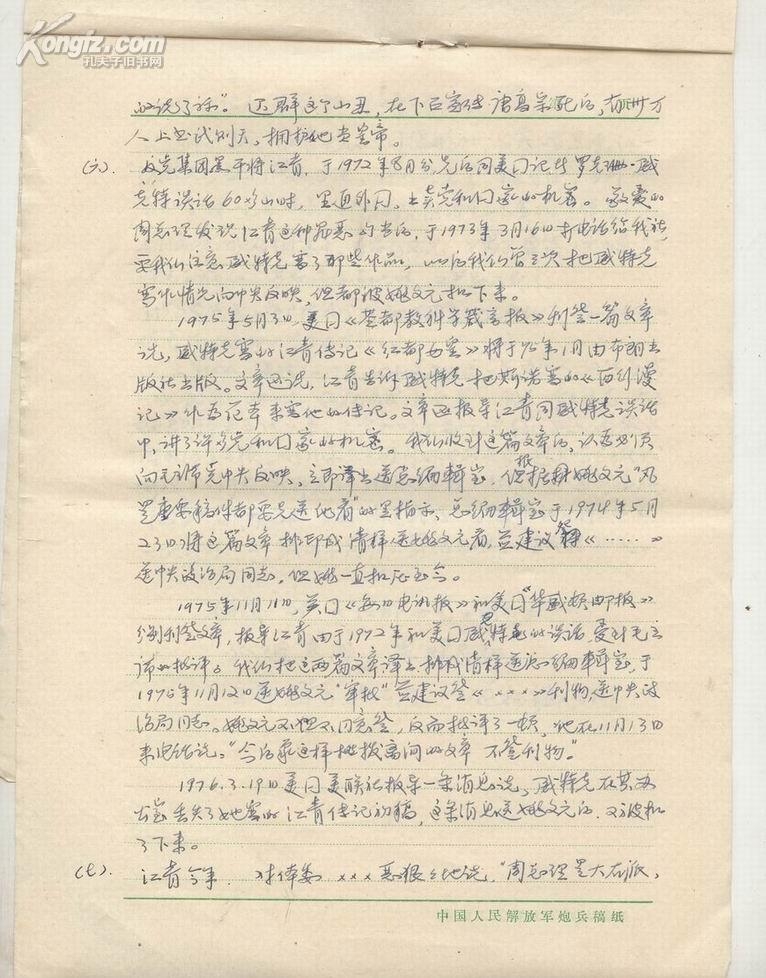 Kongfz.com
孔夫子旧书网
的说了话”。迟群这个小丑,在下台宣传唐高宗死后,有卅万
人上书武则天,拥护他当皇帝。
(六)、反党集团黑干将江青,于1972年8月份先后同美国记者罗克珊·威
克特谈话60多小时,里通外国,出卖党和国家的机密。敬爱的
周总理发现江青这种罪恶的书后,于1973年3月16日打电话给我社,
要我们注意威特克写了那些作品,以后我们曾三次把威特克
写作情况向中央反映,但都被姚文元扣下来。
1975年5月3日,美国《基督教科学箴言报》刊登一篇文章
说,威特克写的江青传记《红都女皇》将于76年1月由布朗出
版社出版。文章还说,江青告诉威特克把斯诺写的《西行漫
记》作为范本来写他的传记。文章还报导江青同威特克谈话
中,讲了许多党和国家的机密。我们收到这篇文章后,认为必须
向毛主席党中央反映,立即译出送总编辑室,但根据姚文元“凡
是重要稿件都要先送他看”的黑指示,总编辑室于1974年5月
23日将这篇文章排印成清样送姚文元看,并建议登《……》
送中央政治局同志,但姚一直扣压至今。
1975年11月11日,英国《每日电讯报》和美国“华盛顿邮报》
分别刊登文章,报导江青由于1972年和美国威特克的谈话,受到毛主
席的批评。我们把这两篇文章译出排成清样送总编辑室,于
1975年11月12日送姚文元“审批”并建议登《×××》刊物,送中央政
治局同志。姚文元不但不同意登,反而批评了一顿,他在11月13日
来电话说:“今后象这样挑拨离间的文章 不登刊物。”
1976.3.19日美国美联社报导一条消息说,威特克在其办
公室丢失了她写的江青传记初稿,这条消息送姚文元后,又被扣
了下来。
(七)、江青今年 对体委×××恶狠狠地说,“周总理是大右派,
中国人民解放军炮兵稿纸